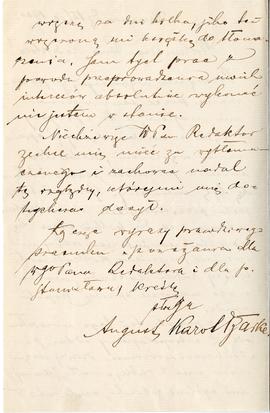 wrzesz za dni kilka, jako też
mi książkę do tłoma-
czenia. Sam tych prac z
powodu przeprowadzenia moich
interesów absolutnie wykonać
nie jestem w stanie.
Niechże Pan Redaktor
zechce mię mieć za wytłoma-
czonego i zachowa nadal
te względy, któremi mię do-
tychczas darzył.
Łączę wyrazy prawdziwego
szacunku i poważania dla
Pana Redaktora i dla p.
Stanisława, kreślę
sługa
August Karol